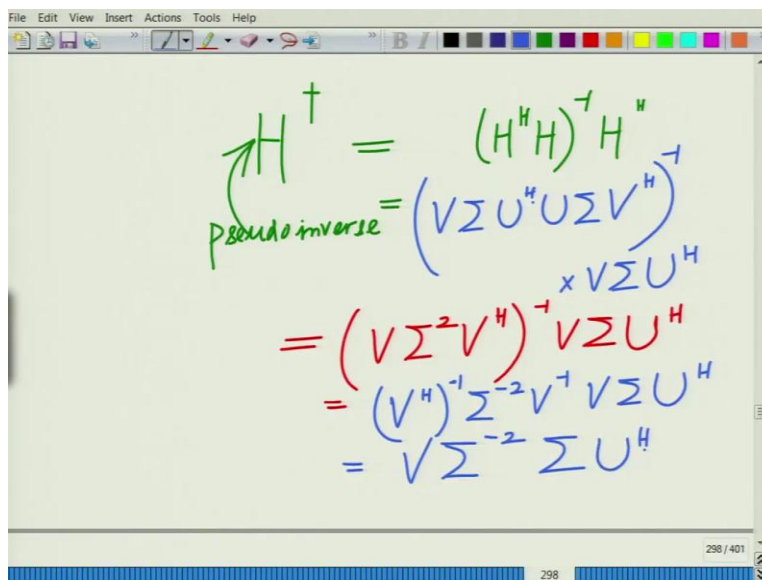 File Edit View Insert Actions Tools Help
B I
H† = (HᴴH)⁻¹ Hᴴ
pseudoinverse
= (VΣUᴴUΣVᴴ)⁻¹
× VΣUᴴ
= (VΣ²Vᴴ)⁻¹ VΣUᴴ
= (Vᴴ)⁻¹ Σ⁻² V⁻¹ VΣUᴴ
= VΣ⁻² ΣUᴴ
298 / 401
298